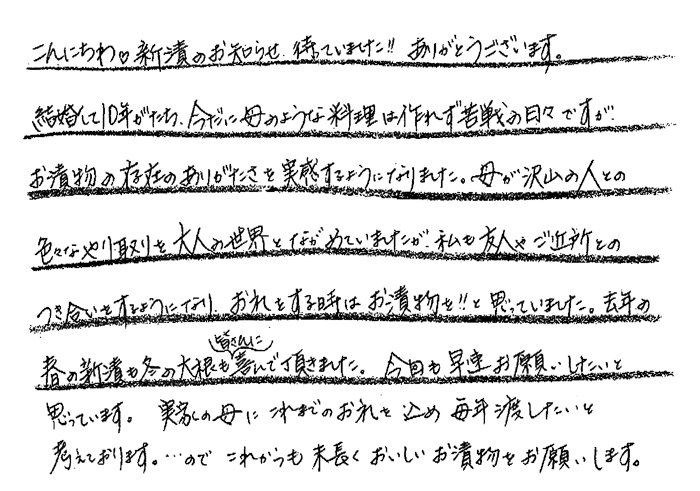 こんにちわ♡新漬のお知らせ、待っていました!! ありがとうございます。
結婚して10年がたち、今だに母のような料理は作れず苦戦の日々ですが、
お漬物の存在のありがたさを実感するようになりました。母が沢山の人との
色々なやり取りを大人の世界とながめていましたが、私も友人やご近所との
つき合いをするようになり、お礼をする時はお漬物を!!と思っていました。去年の
皆さんに
春の新漬も冬の大根も喜んで頂きました。今回も早速お願いしたいと
思っています。実家の母にこれまでのお礼を込め毎年渡したいと
考えております。…のでこれからも末長くおいしいお漬物をお願いします。